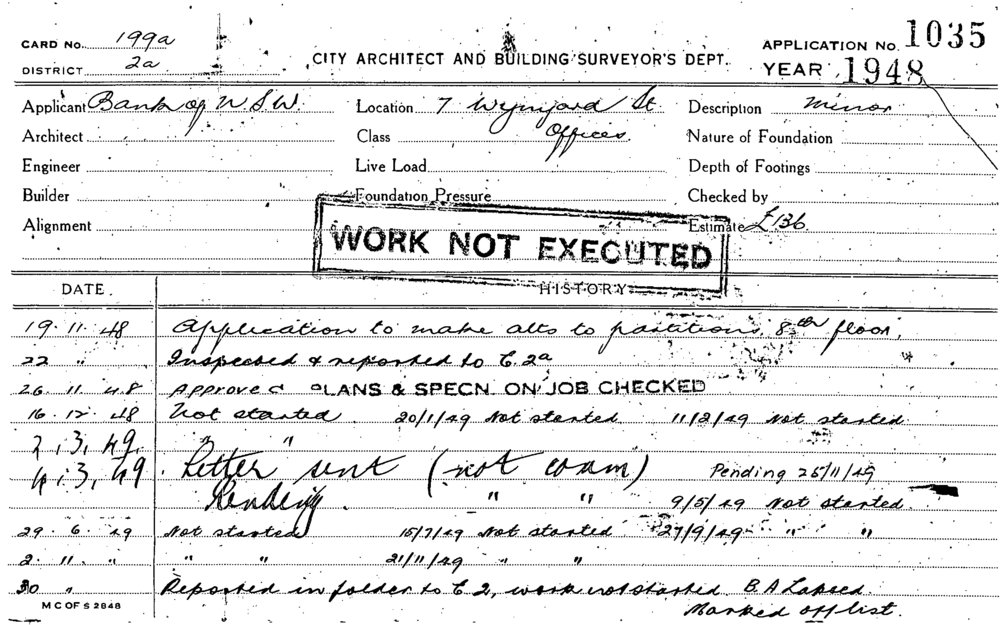 CARD No. 199a
DISTRICT 2a
CITY ARCHITECT AND BUILDING SURVEYOR'S DEPT.
APPLICATION No. 1035
YEAR 1948
Applicant Bank of N S W. Location 7 Wynyard St Description Minor
Architect Class Offices Nature of Foundation
Engineer Live Load Depth of Footings
Builder Foundation Pressure Checked by
Alignment Estimate £136
WORK NOT EXECUTED
DATE HISTORY
19.11.48 Application to make alts to partitions, 8th floor,
22 " Inspected & reported to C.2a
26.11.48 Approved PLANS & SPECN. ON JOB CHECKED
16.12.48 Not started 20/1/49 Not started 11/2/49 Not started
2.3.49. " "
4.3.49 Letter sent (not comm) Pending 25/11/49
Pending. " " 9/5/49 Not started.
29.6.49 Not started 15/7/49 Not started 27/9/49 " "
2.11. " " " 21/11/49 " "
30 " Reported in folder to C 2, work not started B.A Lapsed.
Marked off list.
M C OF S 2848